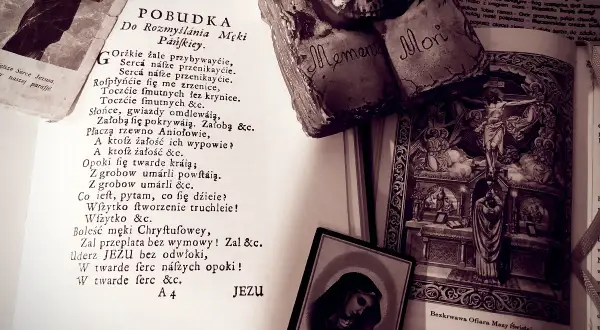 POBUDKA
Do Rozmyślánia Męki
Páńskiey.
GOrżkie żale przybywayćie,
Sercá násze przenikayćie.
Sercá násze przenikayćie.
Rospłyńćie się me zrzenice,
Toczćie ſmutnych łez krynice.
Toczćie ſmutnych &c.
Słońce, gwiazdy omdlewáią,
Żáłobą się pokrywáią. Żałobą &c.
Płáczą rzewno Aniołowie,
A ktoſz żáłość ich wypowie?
A ktoſz żáłość &c.
Opoki się twárde kráią;
Z grobow umárli powſtáią.
Z grobow umárli &c.
Co ieſt, pytam, co się dźieie?
Wſzytko ſtworzenie truchleie!
Wſzytko &c.
Boleść męki Chryſtuſowey,
Żal przepłata bez wymowy! Żal &c.
Uderz JEZU bez odwłoki,
W twárde ſerc nászych opoki!
W twárde ſerc &c.
A 4 JEZU
Serce Jezusa,
naszej parafji
Memento Mori
Bezkrwawa Ofiara Mszy Świętej